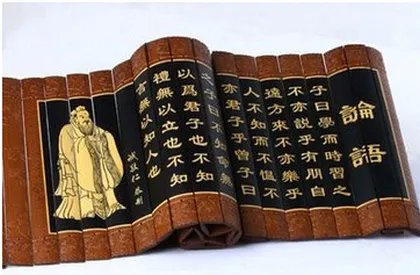 論語
子曰學而時習之
不亦說乎有朋自
遠方來不亦樂乎
人不知而不慍不
亦君子乎
命無
以爲君子也不知
禮無以立也不知
言無以知人也